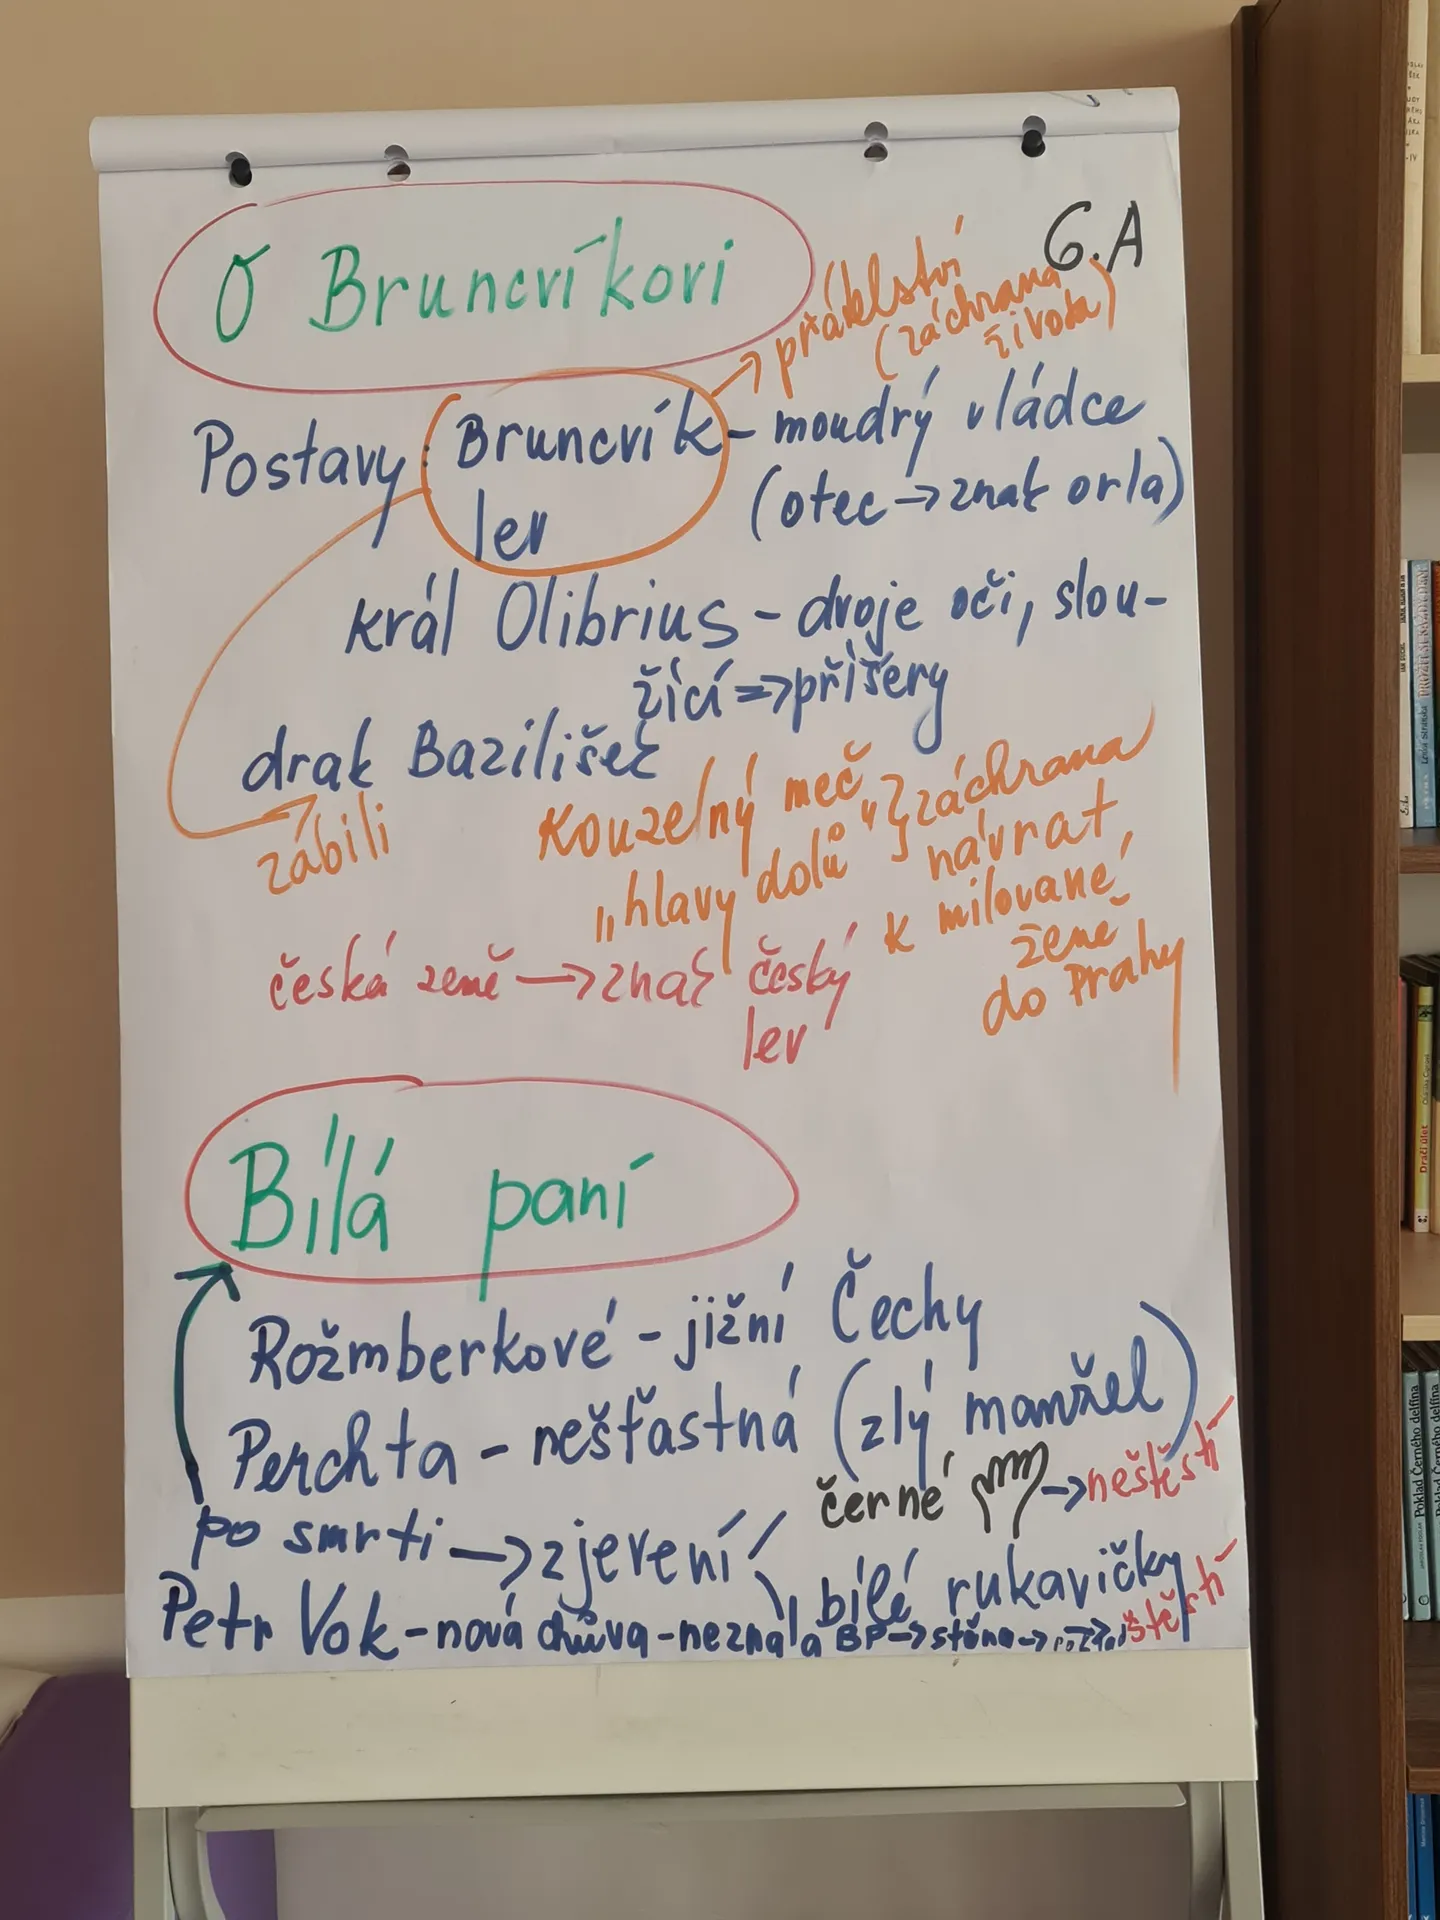 6.A
O Bruncvíkovi
přátelství
(záchrana
života)
Postavy: Bruncvík - moudrý vládce
lev (otec → znak orla)
král Olibrius - dvoje oči, slou-
žící => příšery
drak Bazilišek
zabili
Kouzelný meč
„hlavy dolů“ } záchrana
návrat
k milované
ženě
do Prahy
česká země → znak český
lev
Bílá paní
Rožmberkové - jižní Čechy
Perchta - nešťastná (zlý manžel)
černé → neštěstí
po smrti → zjevení
bílé rukavičky
štěstí
Petr Vok - nová chůva - neznala BP → stěna →
Dračí úlet
Poklad Černého delfína
Poklad Černého delfína